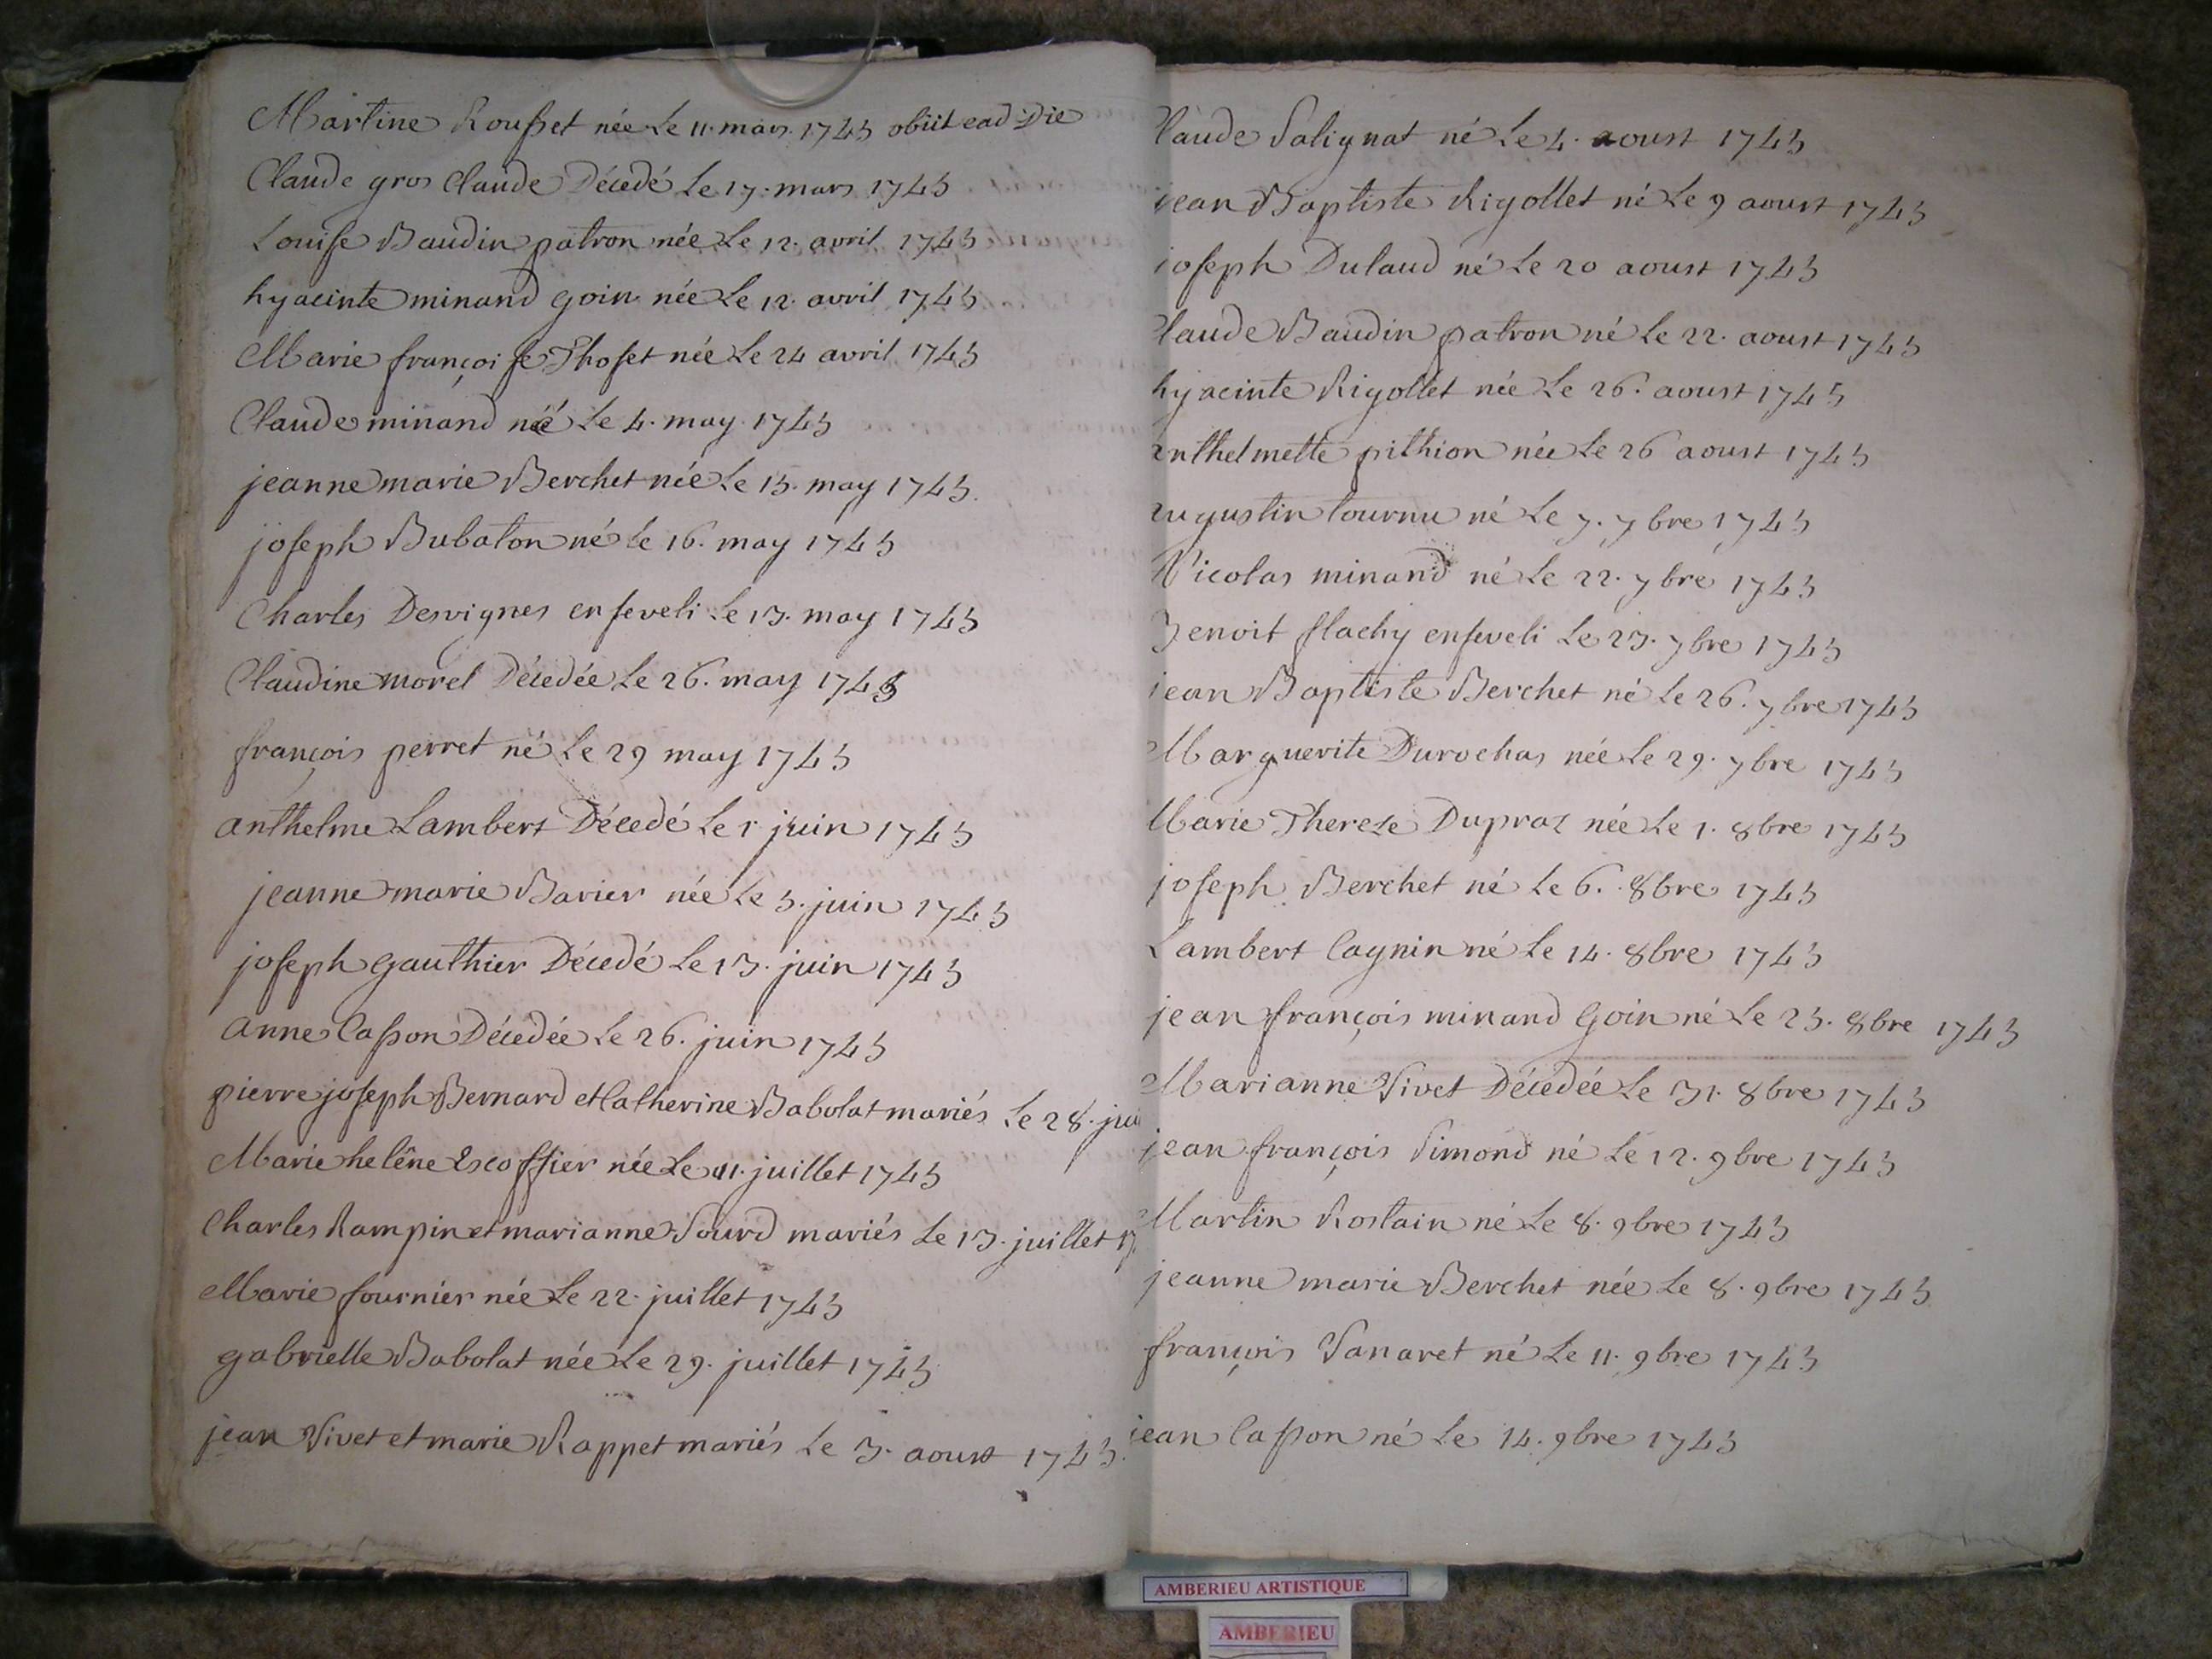 Martine Rousset née Le 11. mars. 1745 obiit ead Die
Claude gros Claude Décedé Le 17. mars 1745
Louise Baudin patron née Le 12. avril 1745
hyacinte minand goin née Le 12. avril 1745
Marie françoise Thoset née Le 24 avril 1745
Claude minand né Le 4. may. 1745
jeanne marie Berchet née Le 15. may 1745.
joseph Bubaton né Le 16. may 1745
Charles Desvignes enseveli Le 13. may 1745
Claudine morel Décedée Le 26. may 1745
françois perret né Le 29 may 1745
anthelme Lambert Décedé Le 1 juin 1745
jeanne marie Barier née Le 5. juin 1745
joseph gauthier Décedé Le 13. juin 1745
anne Casson Décedée Le 26. juin 1745
pierre joseph Bernard et Catherine Babolat mariés Le 28. jui
Marie helêne Escoffier née Le 11. juillet 1745
Charles Rampin et marianne Sourd mariés Le 13. juillet 17
Marie fournier née Le 22. juillet 1745
gabrielle Babolat née Le 29. juillet 1745
jean Vivet et marie Rappet mariés Le 3. aoust 1745.
Claude Salignat né Le 4. aoust 1745
jean Baptiste Rigollet né Le 9 aoust 1745
joseph Dulaud né Le 20 aoust 1745
Claude Baudin patron né Le 22. aoust 1745
hyacinte Rigollet née Le 26. aoust 1745
anthelmette pithion née Le 26 aoust 1745
augustin tournu né Le 7. 7bre 1745
Nicolas minand né Le 22. 7bre 1745
Benoit flachy enseveli Le 23. 7bre 1745
jean Baptiste Berchet né Le 26. 7bre 1745
Marguerite Durochas née Le 29. 7bre 1745
Marie Therese Dupraz née Le 1. 8bre 1745
joseph Berchet né Le 6. 8bre 1745
Lambert Cagnin né Le 14. 8bre 1745
jean françois minand Goin né Le 25. 8bre 1745
Marianne Vivet Décedée Le 31. 8bre 1745
jean françois Simond né Le 12. 9bre 1745
Martin Rostain né Le 8. 9bre 1745
jeanne marie Berchet née Le 8. 9bre 1745
françois Vanaret né Le 11. 9bre 1745
jean Casson né Le 14. 9bre 1745
AMBERIEU ARTISTIQUE
AMBERIEU